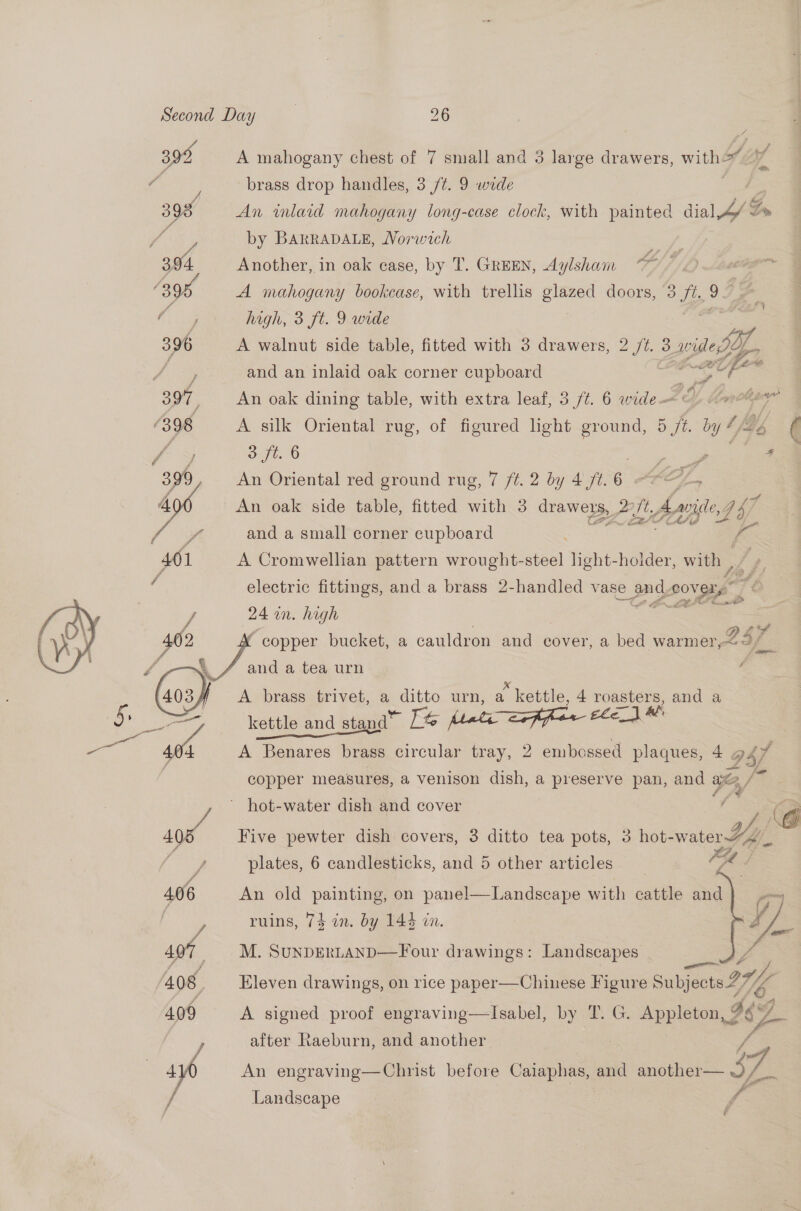 Second Day 26
392 A mahogany chest of 7 small and 3 large drawers, with
brass drop handles, 3 ft. 9 wide
393 An inlaid mahogany long-case clock, with painted dial,
by BARRADALE, Norwich
394 Another, in oak case, by T. GREEN, Aylsham
395 A mahogany bookcase, with trellis glazed doors, 3 ft. 9
high, 3 ft. 9 wide
396 A walnut side table, fitted with 3 drawers, 2 ft. 3 wide,
and an inlaid oak corner cupboard
397 An oak dining table, with extra leaf, 3 ft. 6 wide
398 A silk Oriental rug, of figured light ground, 5 ft. by
3 ft. 6
399 An Oriental red ground rug, 7 ft. 2 by 4 ft. 6
400 An oak side table, fitted with 3 drawers, 2 ft. 4 wide,
and a small corner cupboard
401 A Cromwellian pattern wrought-steel light-holder, with
electric fittings, and a brass 2-handled vase and cover,
24 in. high
402 A copper bucket, a cauldron and cover, a bed warmer,
and a tea urn
403 A brass trivet, a ditto urn, a kettle, 4 roasters, and a
5. kettle and stand
404 A Benares brass circular tray, 2 embossed plaques, 4
copper measures, a venison dish, a preserve pan, and a
hot-water dish and cover
405 Five pewter dish covers, 3 ditto tea pots, 3 hot-water
plates, 6 candlesticks, and 5 other articles
406 An old painting, on panel—Landscape with cattle and
ruins, 7½ in. by 14½ in.
407 M. SUNDERLAND—Four drawings: Landscapes
408 Eleven drawings, on rice paper—Chinese Figure Subjects
409 A signed proof engraving—Isabel, by T. G. Appleton,
after Raeburn, and another
410 An engraving—Christ before Caiaphas, and another—
Landscape